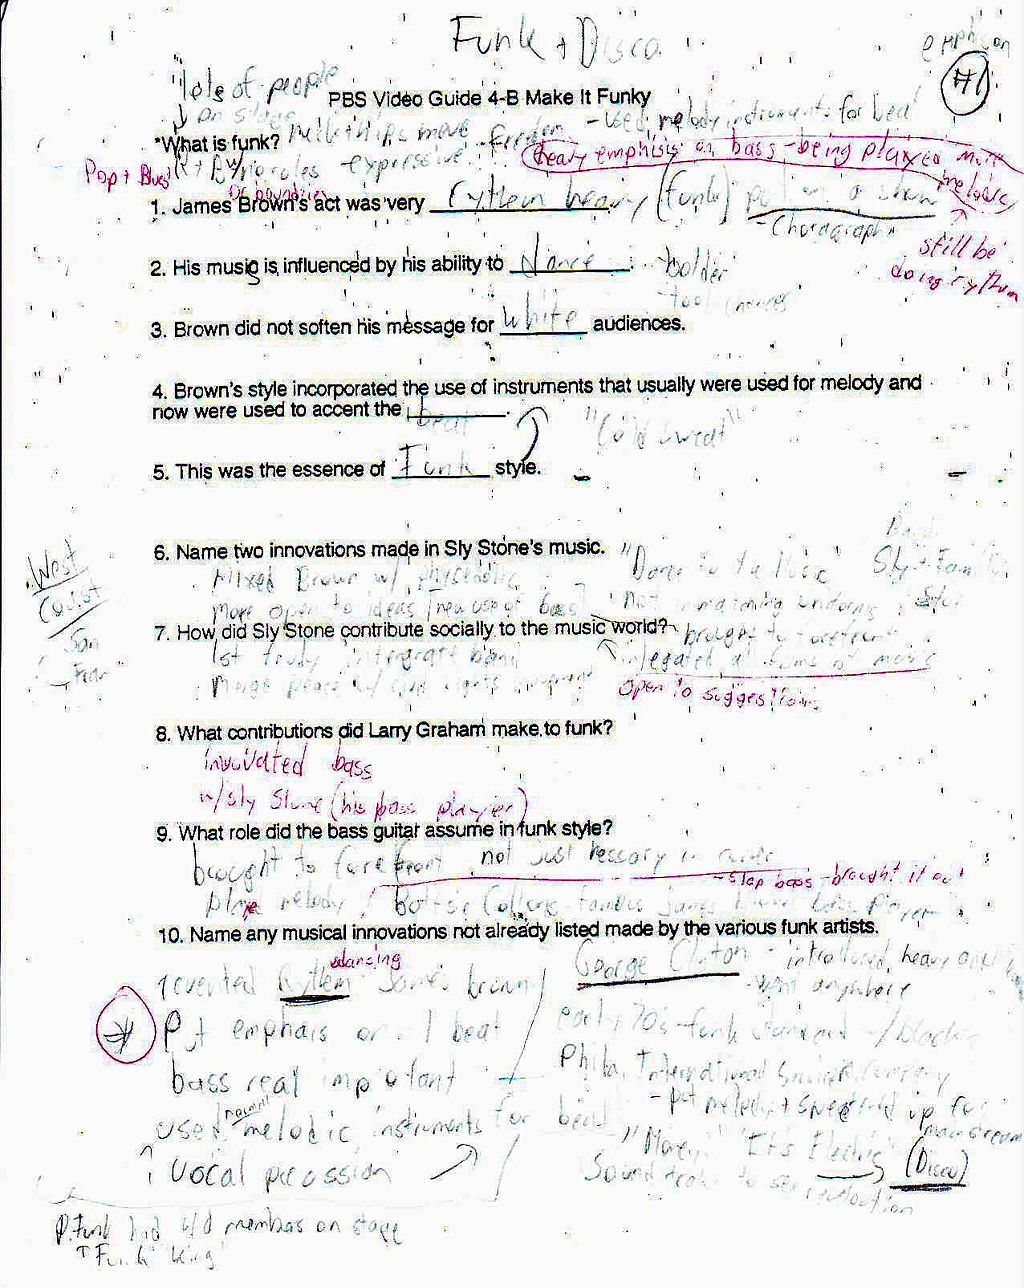 Funk + Disco
#1
lots of people
PBS Video Guide 4-B Make It Funky
on stage
- used melody instruments for beat
*What is funk?
move - freedom
heavy emphisis on bass - being played more melodic
Pop + Blues
R + B w/ no rules - expressive
or boundries
still be doing rythm
1. James Brown's act was very rythem heavy (funk) put on a show
- Choragraph
2. His music is influenced by his ability to dance
- bolder
- took chances
3. Brown did not soften his message for white audiences.
4. Brown's style incorporated the use of instruments that usually were used for melody and
now were used to accent the beat.
"Cold Sweat"
5. This was the essence of Funk style.
West Coast
San Fran
6. Name two innovations made in Sly Stone's music.
"Dance to the Music" Sly + Family Stone
Mixed Brown w/
more open to ideas [new use of bass]
7. How did Sly Stone contribute socially to the music world?
brought to forefront
1st truly intergrate band
integrated all forms of music
Merge peace w/ civil rights movement
open to suggestions
8. What contributions did Larry Graham make to funk?
innovated bass
w/ Sly Stone (his bass player)
9. What role did the bass guitar assume in funk style?
brought to forefront, not just
- slap bass - brought it out
play melody / Bootsie Collins - famous James Brown bass player
10. Name any musical innovations not already listed made by the various funk artists.
dancing
revented Rythem James brown
George Clinton - introduced heavy
- went anywhere
Put emphais on 1 beat
early 70's - funk standard w/
bass real important
Phila. International Company
- put melody + speed up for mainstream
used normal melodic instruments for beat
"Money" "It's Electric" (Disco)
↑ vocal percussion
Sound track to
P. Funk had members on stage
↑ "Funk King"